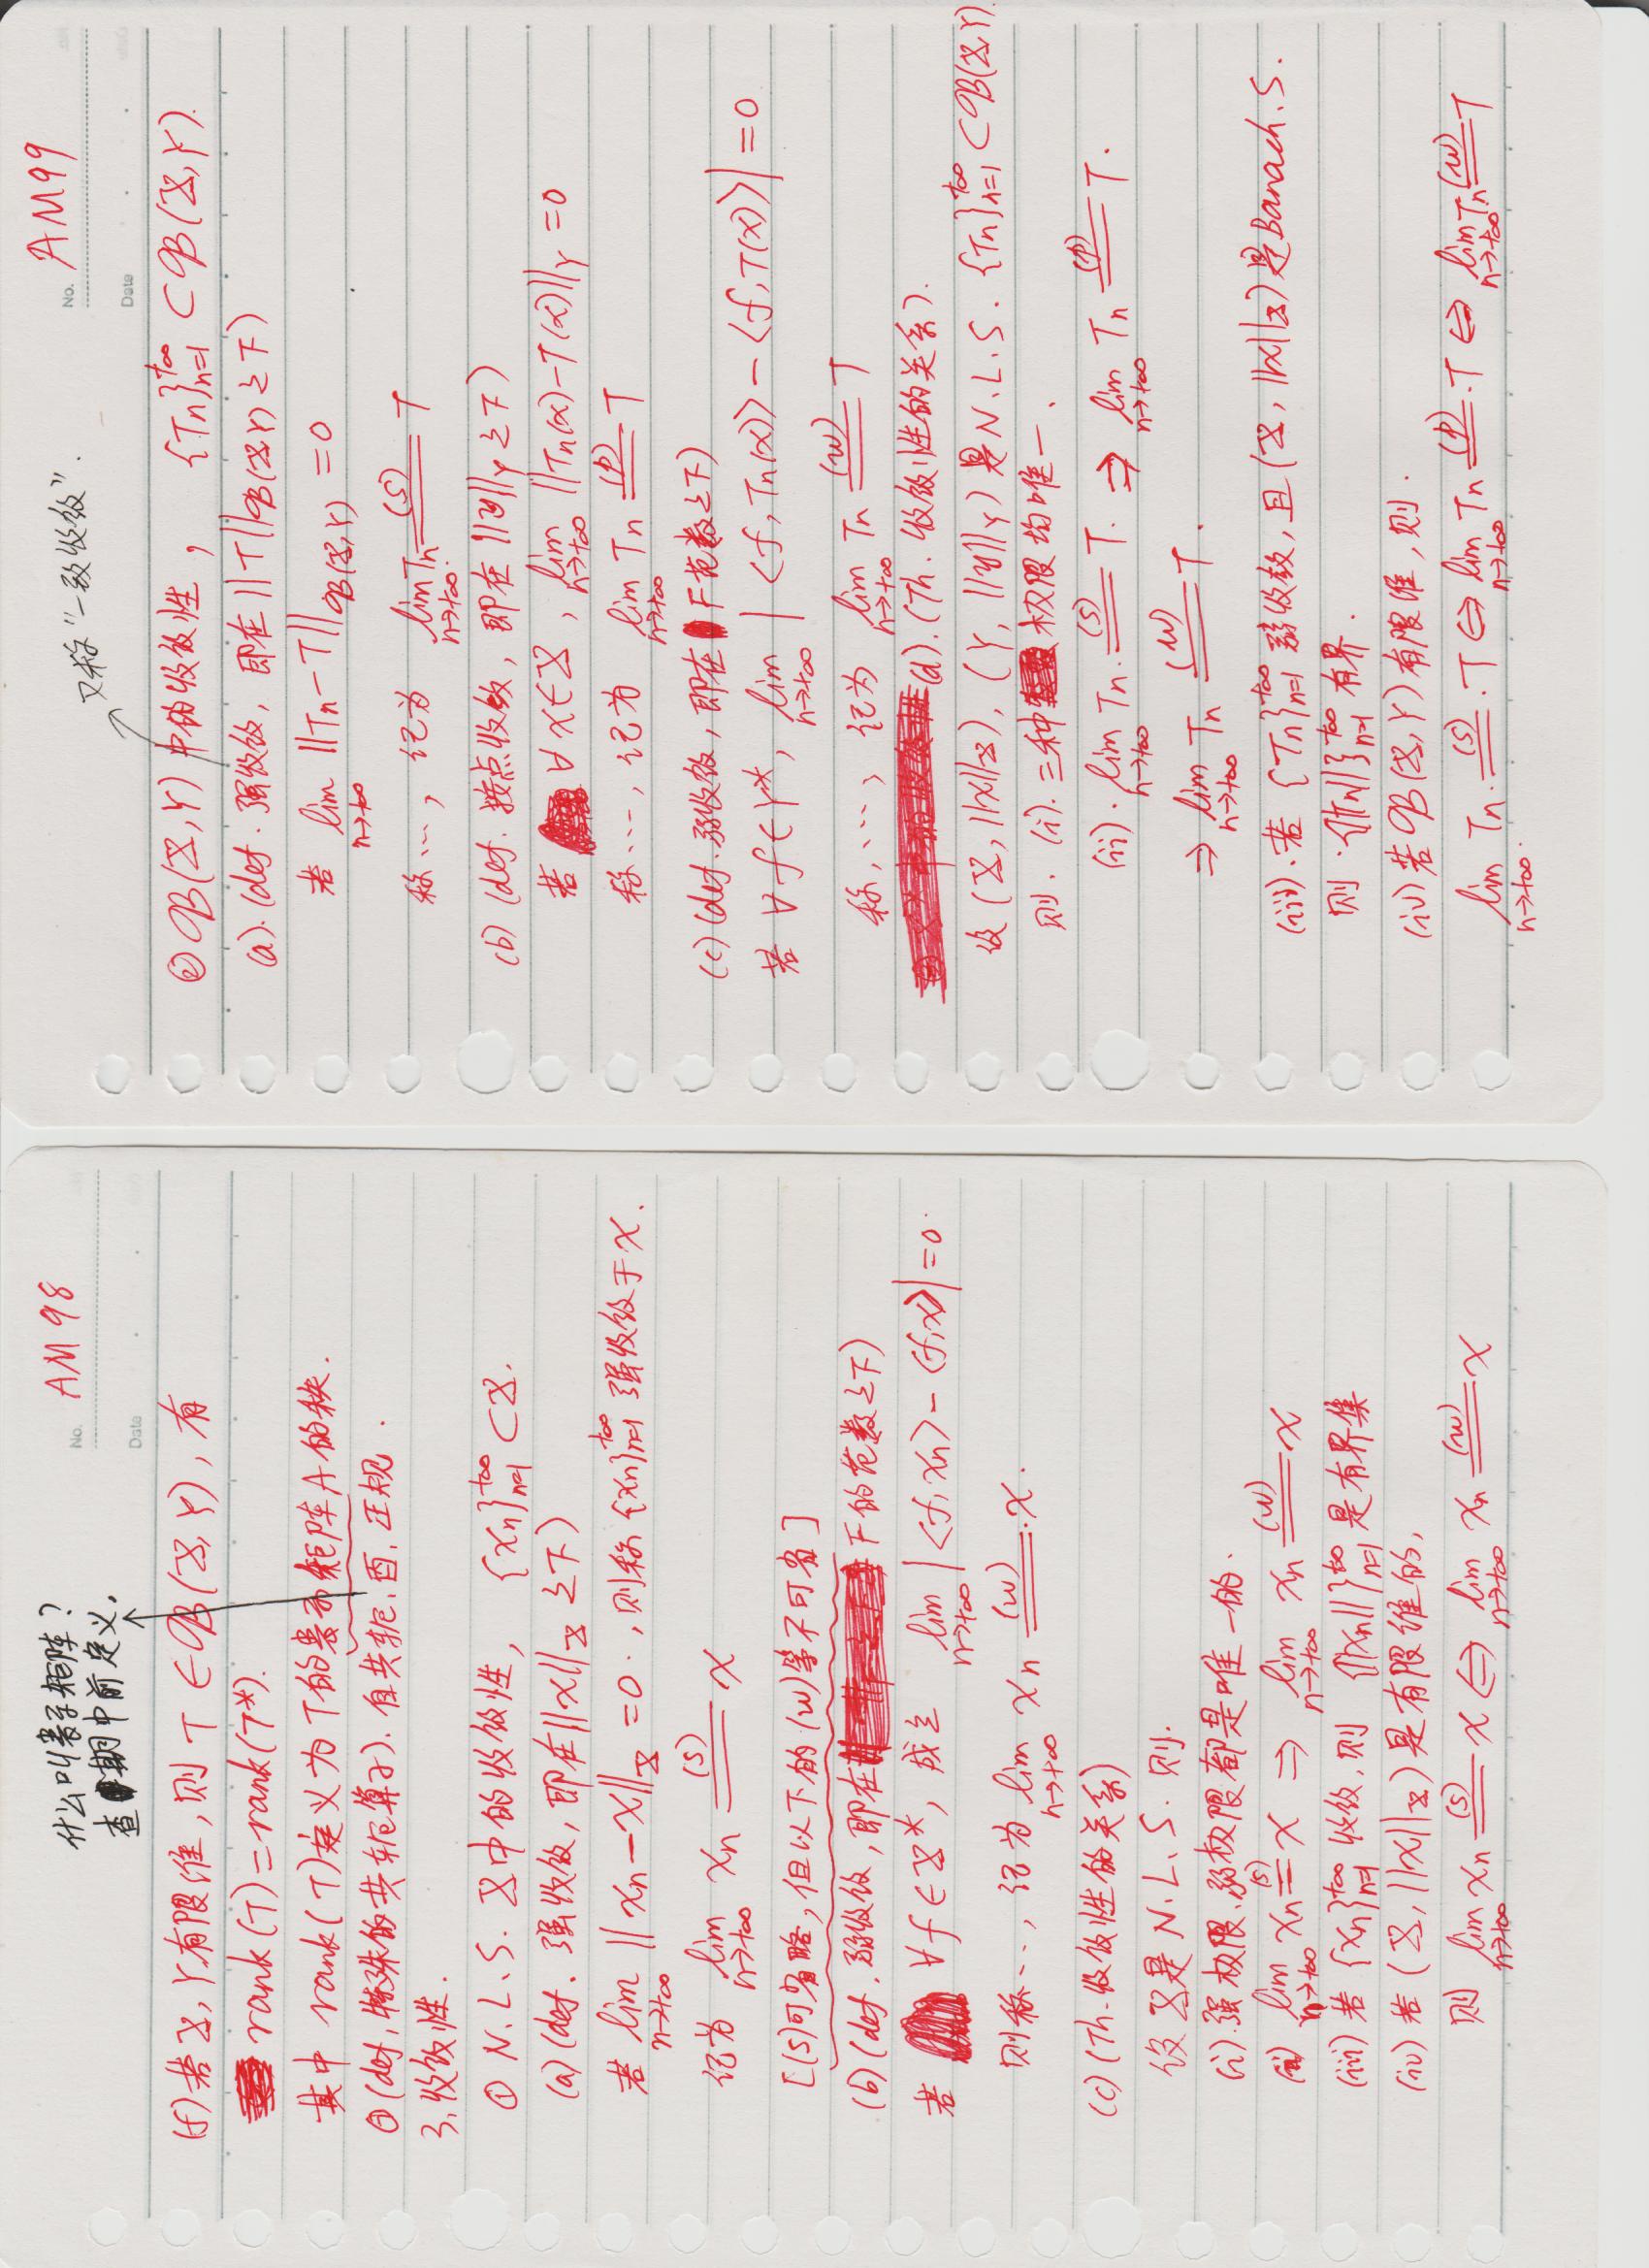 什么叫表示矩阵？
查期中前定义。
No. AM 98
Date
(f) 若 X, Y 有限维, 则 T ∈ 𝓑(X, Y), 有
rank(T) = rank(T*).
其中 rank(T) 定义为 T 的表示矩阵 A 的秩.
(def, 特殊的共轭算子). 自共轭, 酉, 正规.
3. 收敛性.
① N.L.S. X 中的收敛性, {xₙ}ₙ₌₁^{+∞} ⊂ X.
(a) (def. 强收敛, 即在 ||x||_X 之下)
若 lim_{n→+∞} ||xₙ − x||_X = 0., 则称 {xₙ}ₙ₌₁^{+∞} 强收敛于 x.
记为 lim_{n→+∞} xₙ =^{(s)} x
[(s)可省略, 但以下的 (w) 等不可省]
(b) (def. 弱收敛, 即在 F 的范数之下)
若 ∀f ∈ X*, 成立 lim_{n→+∞} |<f, xₙ> − <f, x>| = 0.
则称…, 记为 lim_{n→+∞} xₙ =^{(w)} x.
(c) (Th. 收敛性的关系)
设 X 是 N.L.S. 则.
(i). 强极限、弱极限都是唯一的.
(ii) lim_{n→+∞} xₙ =^{(s)} x ⇒ lim_{n→+∞} xₙ =^{(w)} x
(iii) 若 {xₙ}ₙ₌₁^{+∞} 收敛, 则 {||xₙ||}ₙ₌₁^{+∞} 是有界集
(iv) 若 (X, ||x||_X) 是有限维的,
则 lim_{n→+∞} xₙ =^{(s)} x ⇔ lim_{n→+∞} xₙ =^{(w)} x
又称“一致收敛”.
No. AM99
Date
② 𝓑(X, Y) 中的收敛性, {Tₙ}ₙ₌₁^{+∞} ⊂ 𝓑(X, Y).
(a). (def. 强收敛, 即在 ||T||_{𝓑(X,Y)} 之下)
若 lim_{n→+∞} ||Tₙ − T||_{𝓑(X,Y)} = 0
称…, 记为 lim_{n→+∞} Tₙ =^{(s)} T
(b) (def. 按点收敛, 即在 ||y||_Y 之下)
若 ∀x ∈ X, lim_{n→+∞} ||Tₙ(x) − T(x)||_Y = 0
称…, 记为 lim_{n→+∞} Tₙ =^{(p)} T
(c) (def. 弱收敛, 即在 F 范数之下)
若 ∀f ∈ Y*, lim_{n→+∞} |<f, Tₙ(x)> − <f, T(x)>| = 0
称, …, 记为 lim_{n→+∞} Tₙ =^{(w)} T
(d). (Th. 收敛性的关系).
设 (X, ||x||_X), (Y, ||y||_Y) 是 N.L.S. {Tₙ}ₙ₌₁^{+∞} ⊂ 𝓑(X,Y).
则. (i). 三种极限均唯一.
(ii). lim_{n→+∞} Tₙ =^{(s)} T. ⇒ lim_{n→+∞} Tₙ =^{(p)} T.
⇒ lim_{n→+∞} Tₙ =^{(w)} T.
(iii). 若 {Tₙ}ₙ₌₁^{+∞} 弱收敛, 且 (X, ||x||_X) 是 Banach. S.
则 {||Tₙ||}ₙ₌₁^{+∞} 有界.
(iv) 若 𝓑(X, Y) 有限维, 则.
lim_{n→+∞} Tₙ =^{(s)} T ⇔ lim_{n→+∞} Tₙ =^{(p)} T ⇔ lim_{n→+∞} Tₙ =^{(w)} T